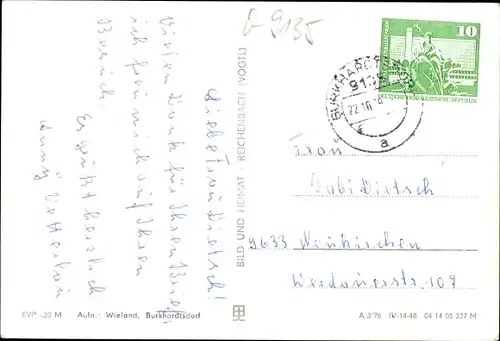 D-9135
Liebe Frau Dietsch!
Vielen Dank für Ihren Brief,
ich freu mich auf Ihren
Besuch
Es grüßt herzlich
BILD UND HEIMAT · REICHENBACH (VOGTL)
10
BURKHARDTSDORF
9135
22.10.
a
DEUTSCHE DEMOKRATISCHE REPUBLIK
Frau
Gabi Dietsch
9633 Neukirchen
Werdauerstr. 107
EVP -,20 M Aufn.: Wieland, Burkhardtsdorf
A 3/76 IV-14-48 04 14 05 337 M